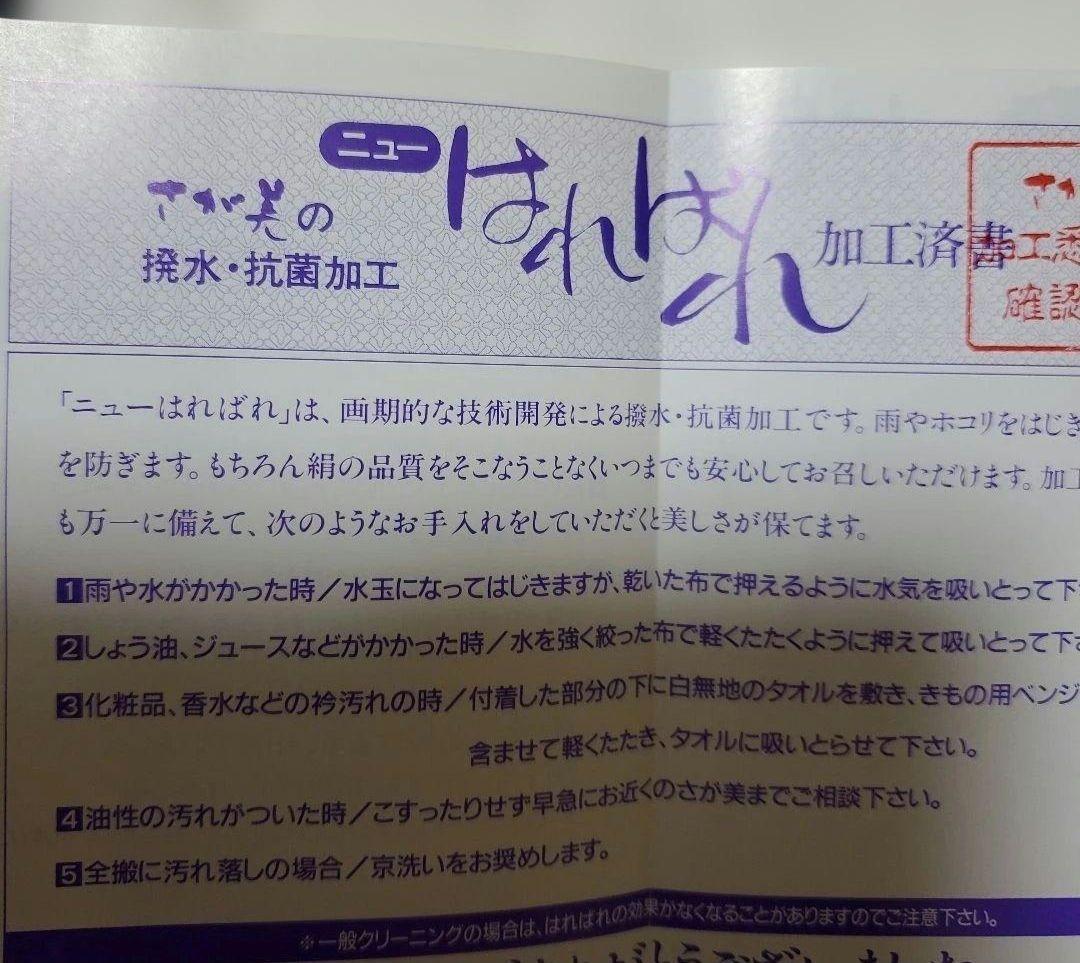 ニュー
はればれ
さが美の
撥水・抗菌加工
加工済書
さが
加工済
確認
「ニューはればれ」は、画期的な技術開発による撥水・抗菌加工です。雨やホコリをはじき
を防ぎます。もちろん絹の品質をそこなうことなくいつまでも安心してお召しいただけます。加工
も万一に備えて、次のようなお手入れをしていただくと美しさが保てます。
1雨や水がかかった時／水玉になってはじきますが、乾いた布で押えるように水気を吸いとって下
2しょう油、ジュースなどがかかった時／水を強く絞った布で軽くたたくように押えて吸いとって下さ
3化粧品、香水などの衿汚れの時／付着した部分の下に白無地のタオルを敷き、きもの用ベンジ
含ませて軽くたたき、タオルに吸いとらせて下さい。
4油性の汚れがついた時／こすったりせず早急にお近くのさが美までご相談下さい。
5全搬に汚れ落しの場合／京洗いをお奨めします。
※一般クリーニングの場合は、はればれの効果がなくなることがありますのでご注意下さい。